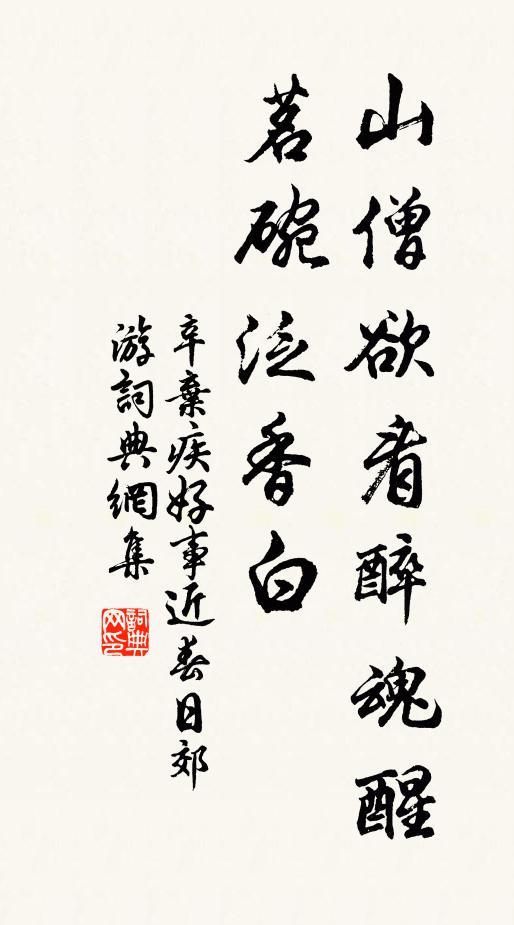 山僧欲看醉魂醒
茗碗泛香白
辛棄疾好事近春日郊
游詞典網集
詞典网印